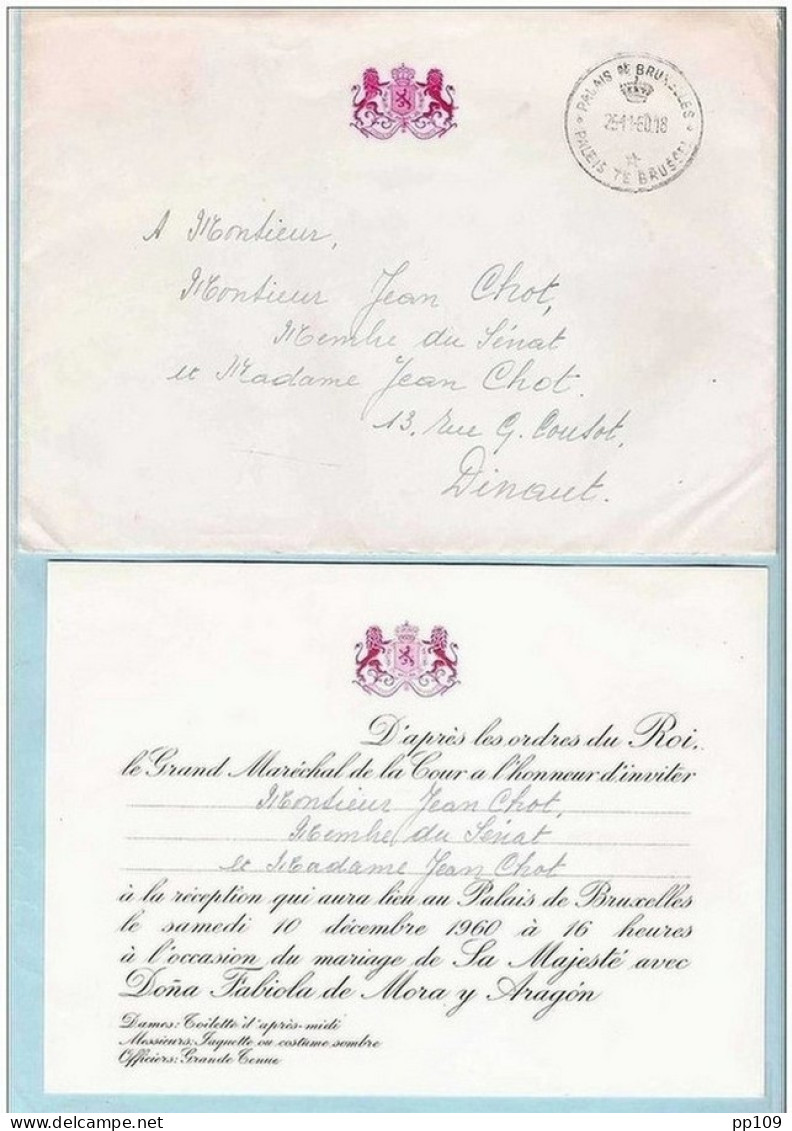 PALAIS DE BRUXELLES
25-11-60.18
PALEIS TE BRUSSEL
A Monsieur,
Monsieur Jean Chot,
Membre du Sénat
et Madame Jean Chot.
13, rue G. Cousot,
Dinant.
D'après les ordres du Roi,
le Grand Maréchal de la Cour a l'honneur d'inviter
Monsieur Jean Chot,
Membre du Sénat
et Madame Jean Chot
à la réception qui aura lieu au Palais de Bruxelles
le samedi 10 décembre 1960 à 16 heures
à l'occasion du mariage de Sa Majesté avec
Doña Fabiola de Mora y Aragón
Dames: Toilette d'après-midi
Messieurs: Jaquette ou costume sombre
Officiers: Grande Tenue
pp109